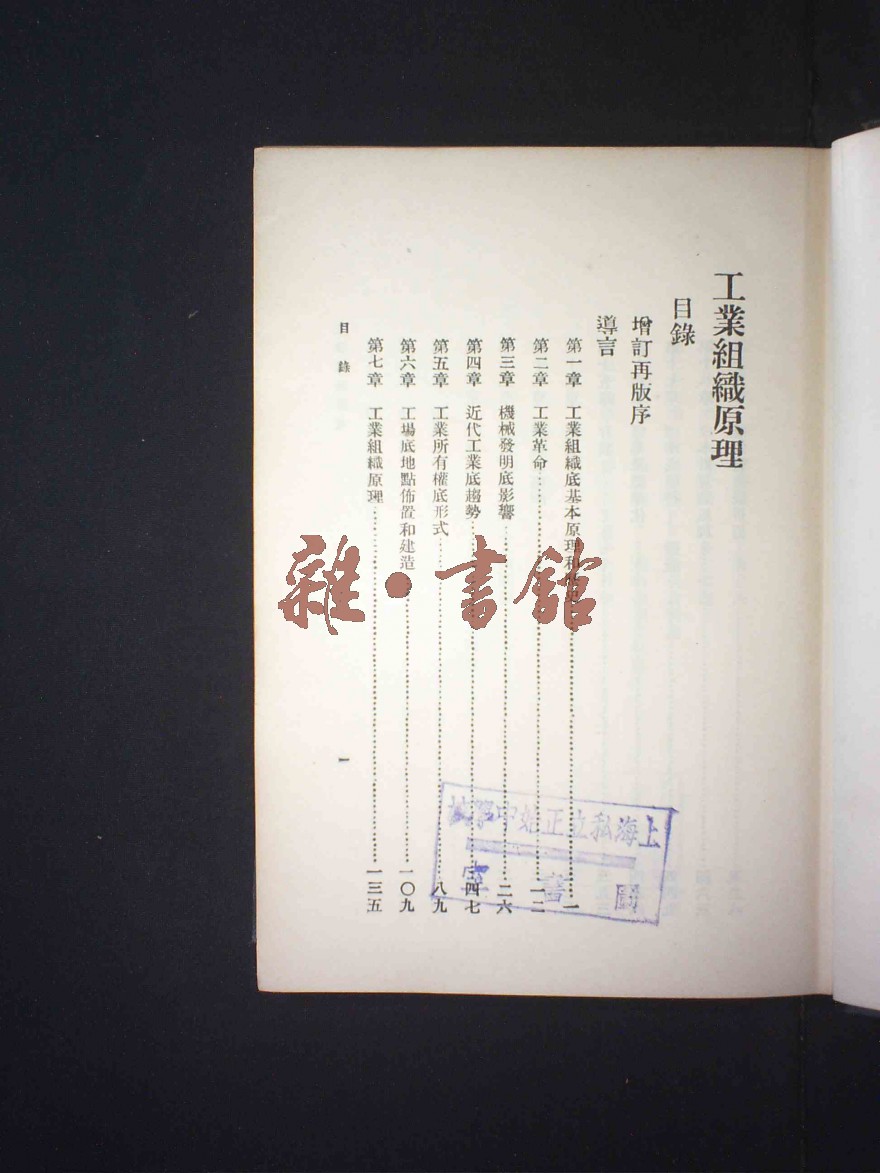 工業組織原理
目錄
增訂再版序
導言
第一章 工業組織底基本原理和 一
第二章 工業革命 一二
第三章 機械發明底影響 二六
第四章 近代工業底趨勢 四七
第五章 工業所有權底形式 八九
第六章 工場底地點佈置和建造 一〇九
第七章 工業組織原理 一三五
目錄
一
雜·書館
上海私立正始中學校
圖書室